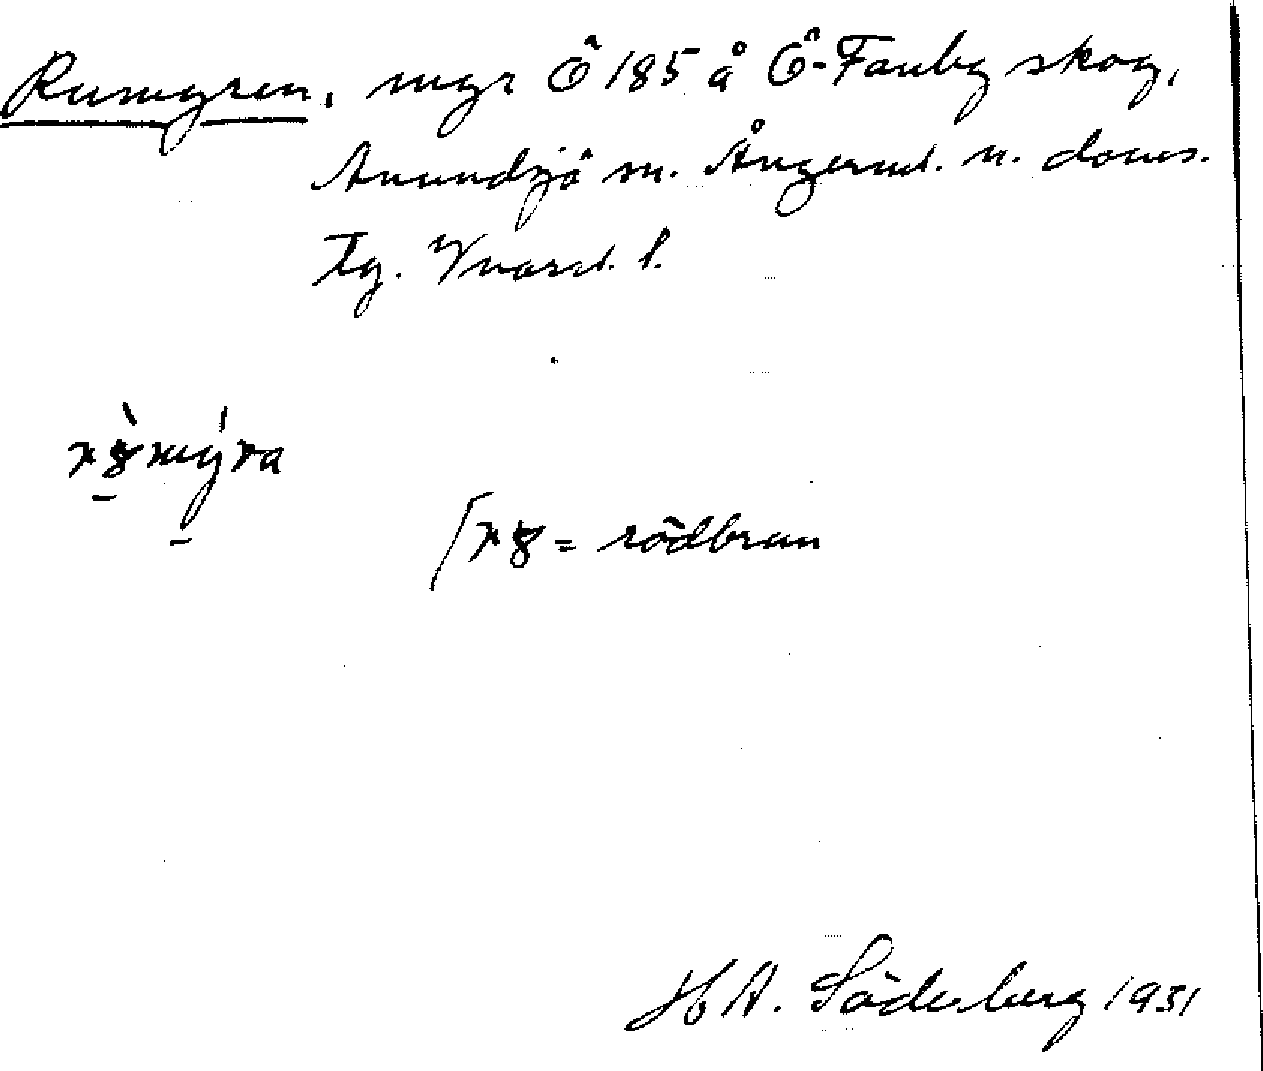 Rumyren, myr Ö 185 å Ö-Fanby skog,
Anundsjö sn. Ångerml. n. doms.
Tg. Vnorrl. l.
myra
= rödbrun
H A. Söderberg 1931